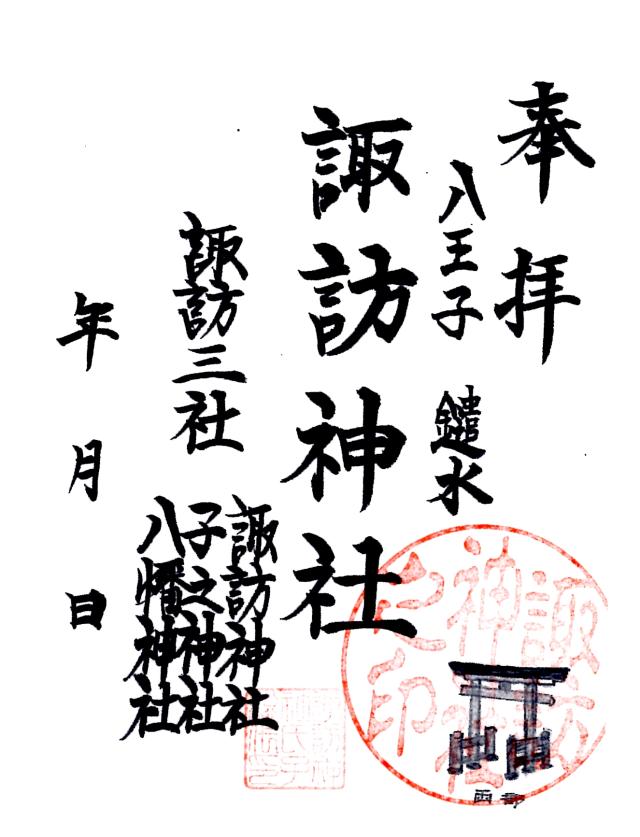 奉拝
八王子 鑓水
諏訪神社
諏訪三社
諏訪神社
子之神社
八幡神社
年月日
諏訪神社之印